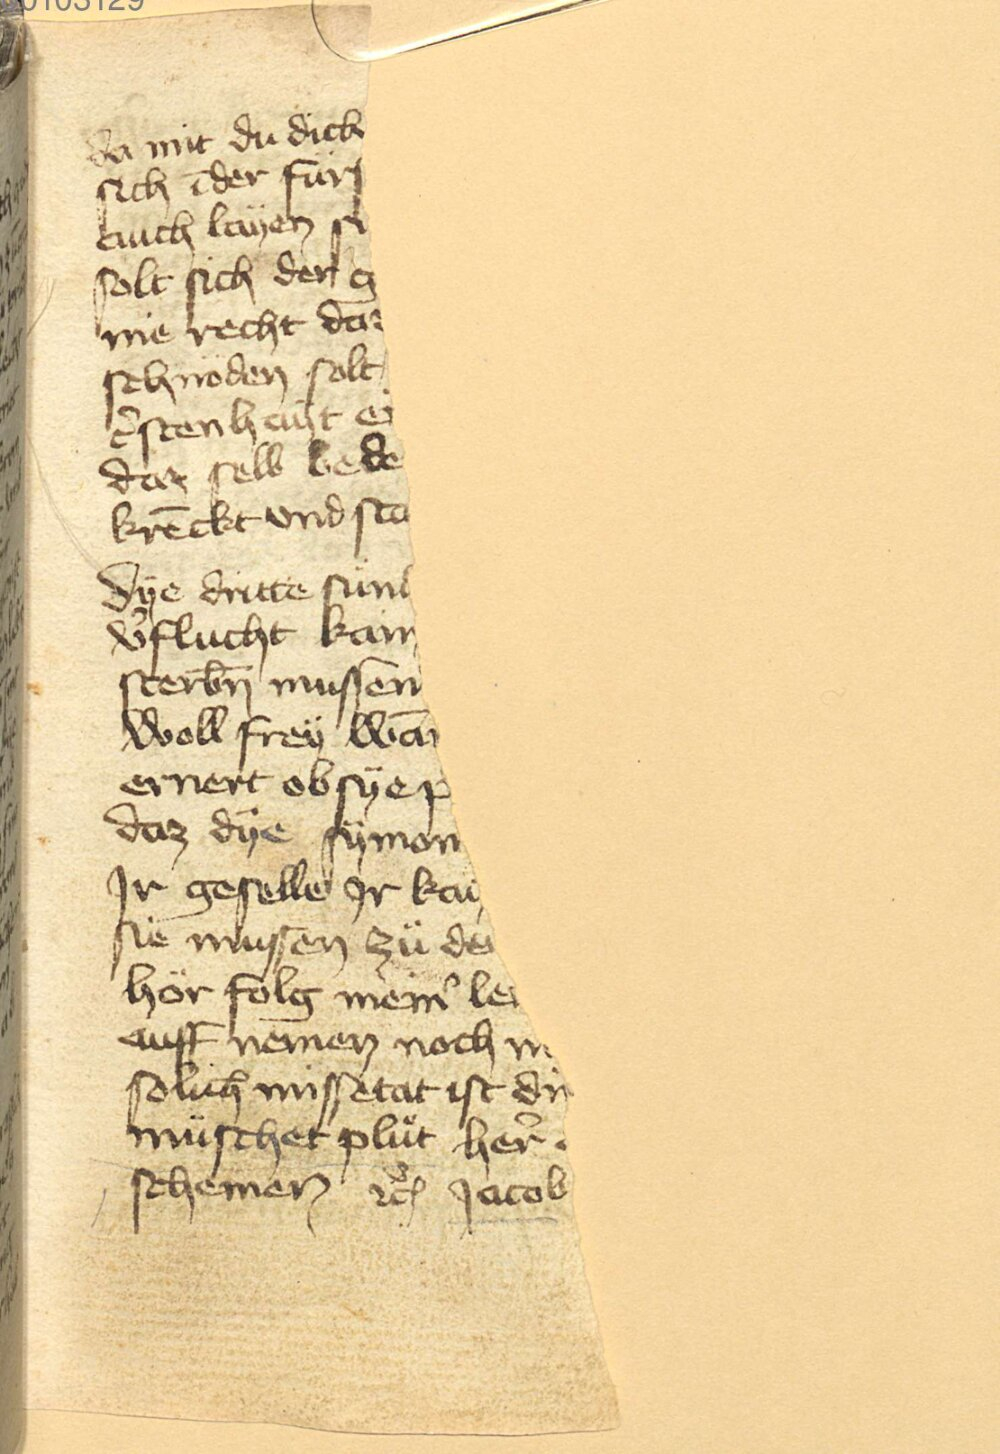 da mit du dick
sich īder fürs
auch layen si
solt sich der g
nie recht daz
schnöden solt
c̄stenhayt ei
daz selb bede
krēckt vnd sta
Dye dritte sünd
v̄flucht kain
sterbn̄ mussen
Woll frey Wan
ernert ob sye p
daz dye symon
Jr geselle Jr kai
sie mussen zü de
hör folg mein̄ le
auff nemen noch
solich missetat ist
müschet plüt her̄
schemen rc̄ Jacob